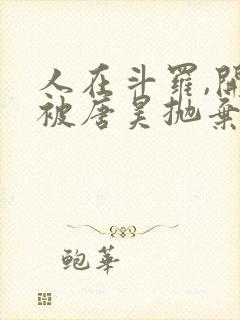 人在斗罗,開
被唐昊抛棄
鲍華